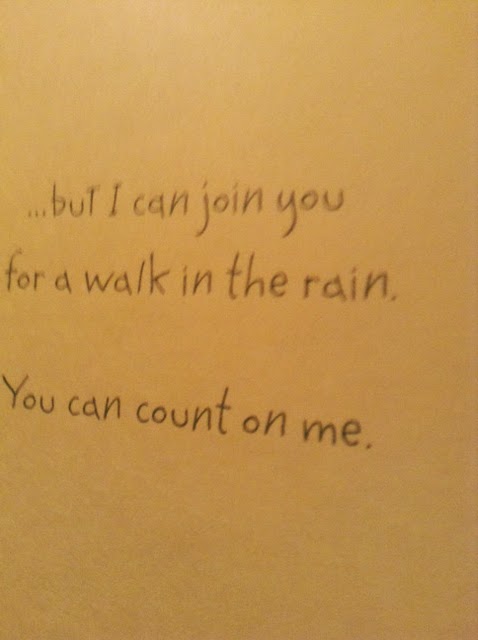 ...but I can join you
for a walk in the rain.
You can count on me.